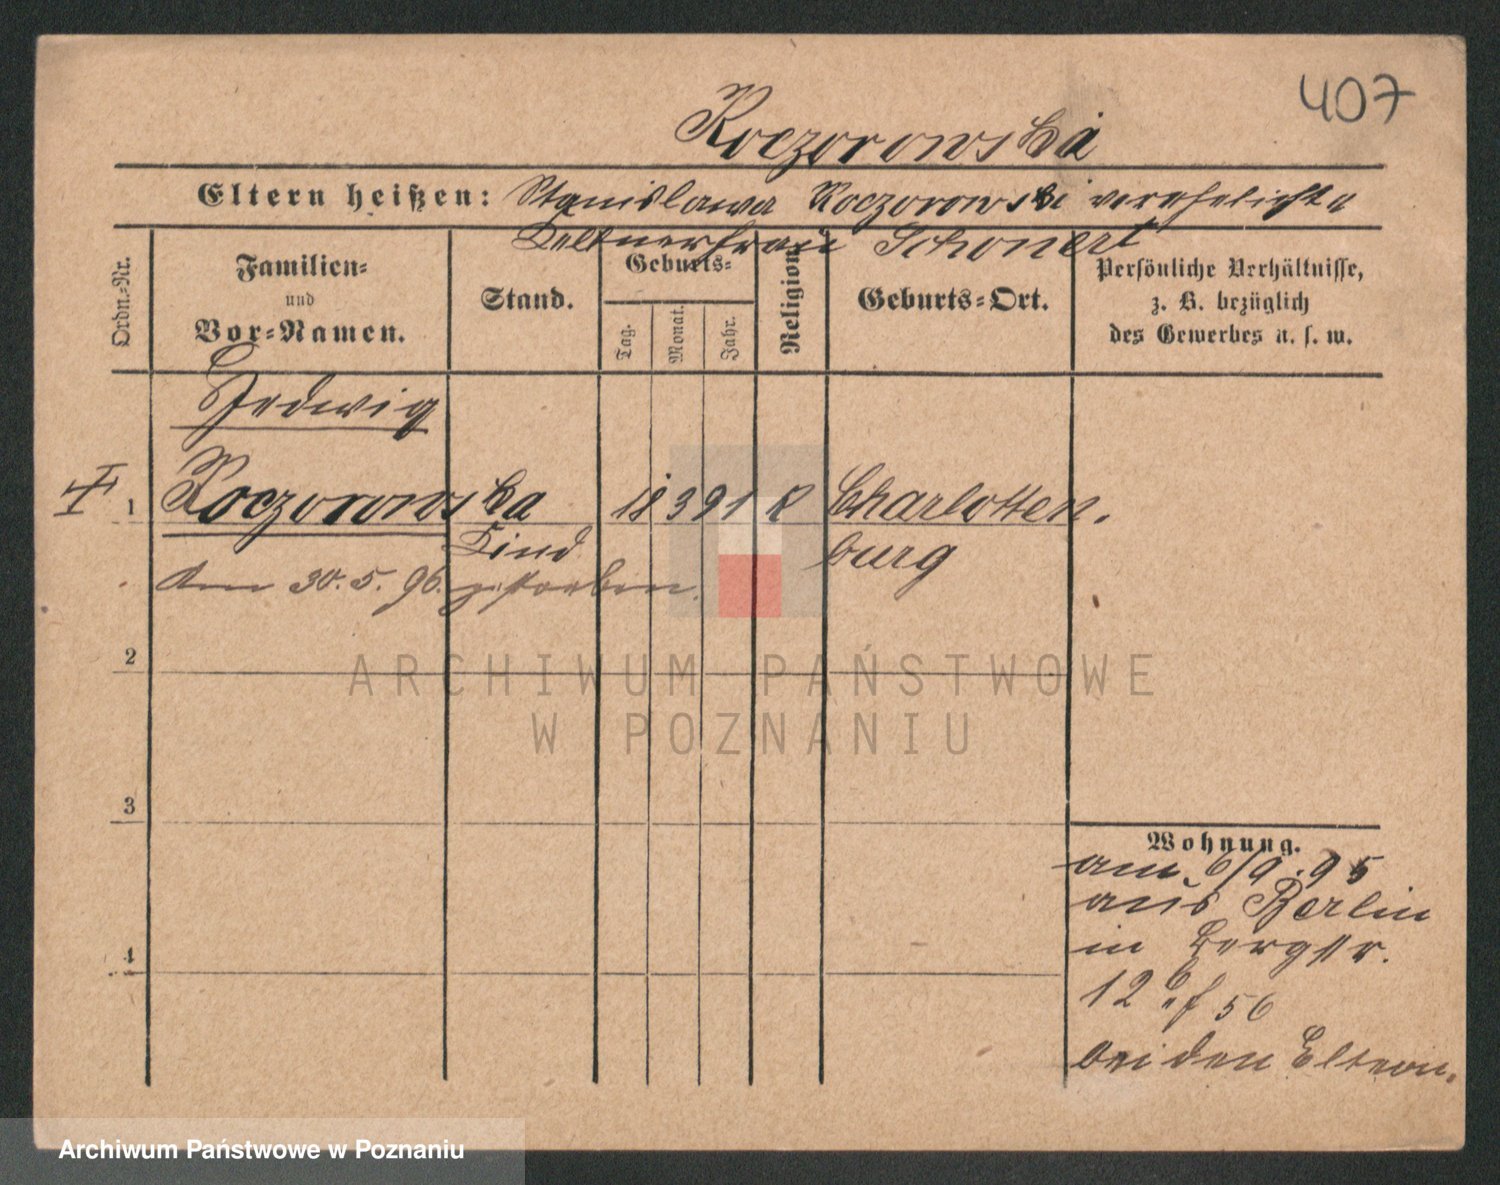 407
Koczorowska
Eltern heißen: Stanislawa Koczorowski verehelichte
Kellnerfrau Schonert
Ordn.-Nr.
Familien-
und
Vor-Namen.
Stand.
Geburts-
Tag.
Monat.
Jahr.
Religion.
Geburts-Ort.
Persönliche Verhältnisse,
z. B. bezüglich
des Gewerbes u. s. w.
Hedwig
1 Koczorowska 18 3 91 K Charlotten
Kind burg
Am 30.5.96. gestorben.
2
ARCHIWUM PAŃSTWOWE
W POZNANIU
3
Wohnung.
am 6/9.95
aus Berlin
in Bergstr.
4
12
56
bei den Eltern.
Archiwum Państwowe w Poznaniu